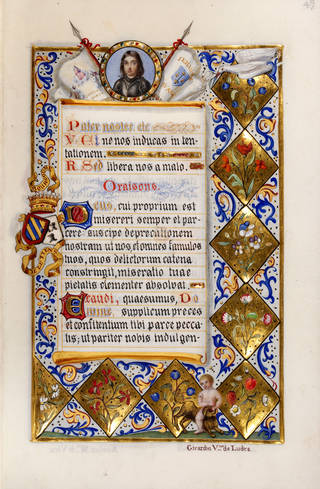 Pater noster. etc
V. Et ne nos inducas in ten
tationem.
R. Sed libera nos a malo.
Oraisons.
Deus, cui proprium est
misereri semper et par
cere suscipe deprecationem
nostram ut nos, et omnes famulos
tuos, quos delictorum catena
constringit, miseratio tuae
pietatis clementer absolvat.
Exaudi, quaesumus, Do
mine, supplicum preces
et confitentium tibi parce pecca
tis; ut pariter nobis indulgen-
Girardo V.te de Ludre